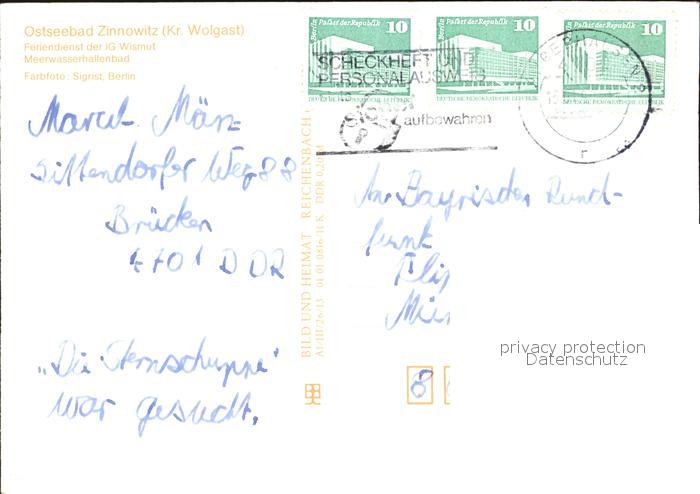 Ostseebad Zinnowitz (Kr. Wolgast)
Feriendienst der IG Wismut
Meerwasserhallenbad
Farbfoto: Sigrist, Berlin
Berlin Palast der Republik 10
Palast der Republik 10
Berlin Palast der Republik 10
DEUTSCHE DEMOKRATISCHE REPUBLIK
DEUTSCHE DEMOKRATISCHE REPUBLIK
DEUTSCHE DEMOKRATISCHE REPUBLIK
SCHECKHEFT UND
PERSONALAUSWEIS
aufbewahren
r
Marcel März
Sittendorfer Weg 88
Brücken
4701 DDR
"Die Sternschuppe"
war gesucht.
BILD UND HEIMAT REICHENBACH
A1/III/26/13 01 01 0816/11 K DDR
An Bayrischen Rund-
funk
Mün
8
privacy protection
Datenschutz